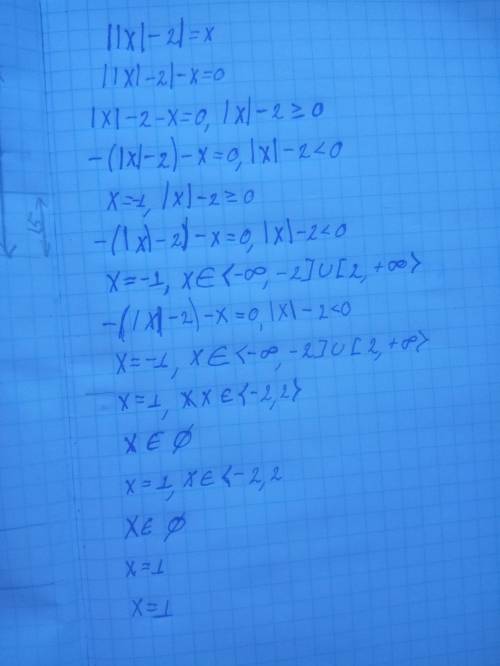 ||x|-2|=x
||x|-2|-x=0
|x|-2-x=0, |x|-2≥0
-(|x|-2)-x=0, |x|-2<0
x=-1, |x|-2≥0
-(|x|-2)-x=0, |x|-2<0
x=-1, x∈⟨-∞, -2]∪[2, +∞⟩
-(|x|-2)-x=0, |x|-2<0
x=-1, x∈⟨-∞, -2]∪[2, +∞⟩
x=1, x x∈⟨-2,2⟩
x∈∅
x=1, x∈⟨-2,2
x∈∅
x=1
x=1